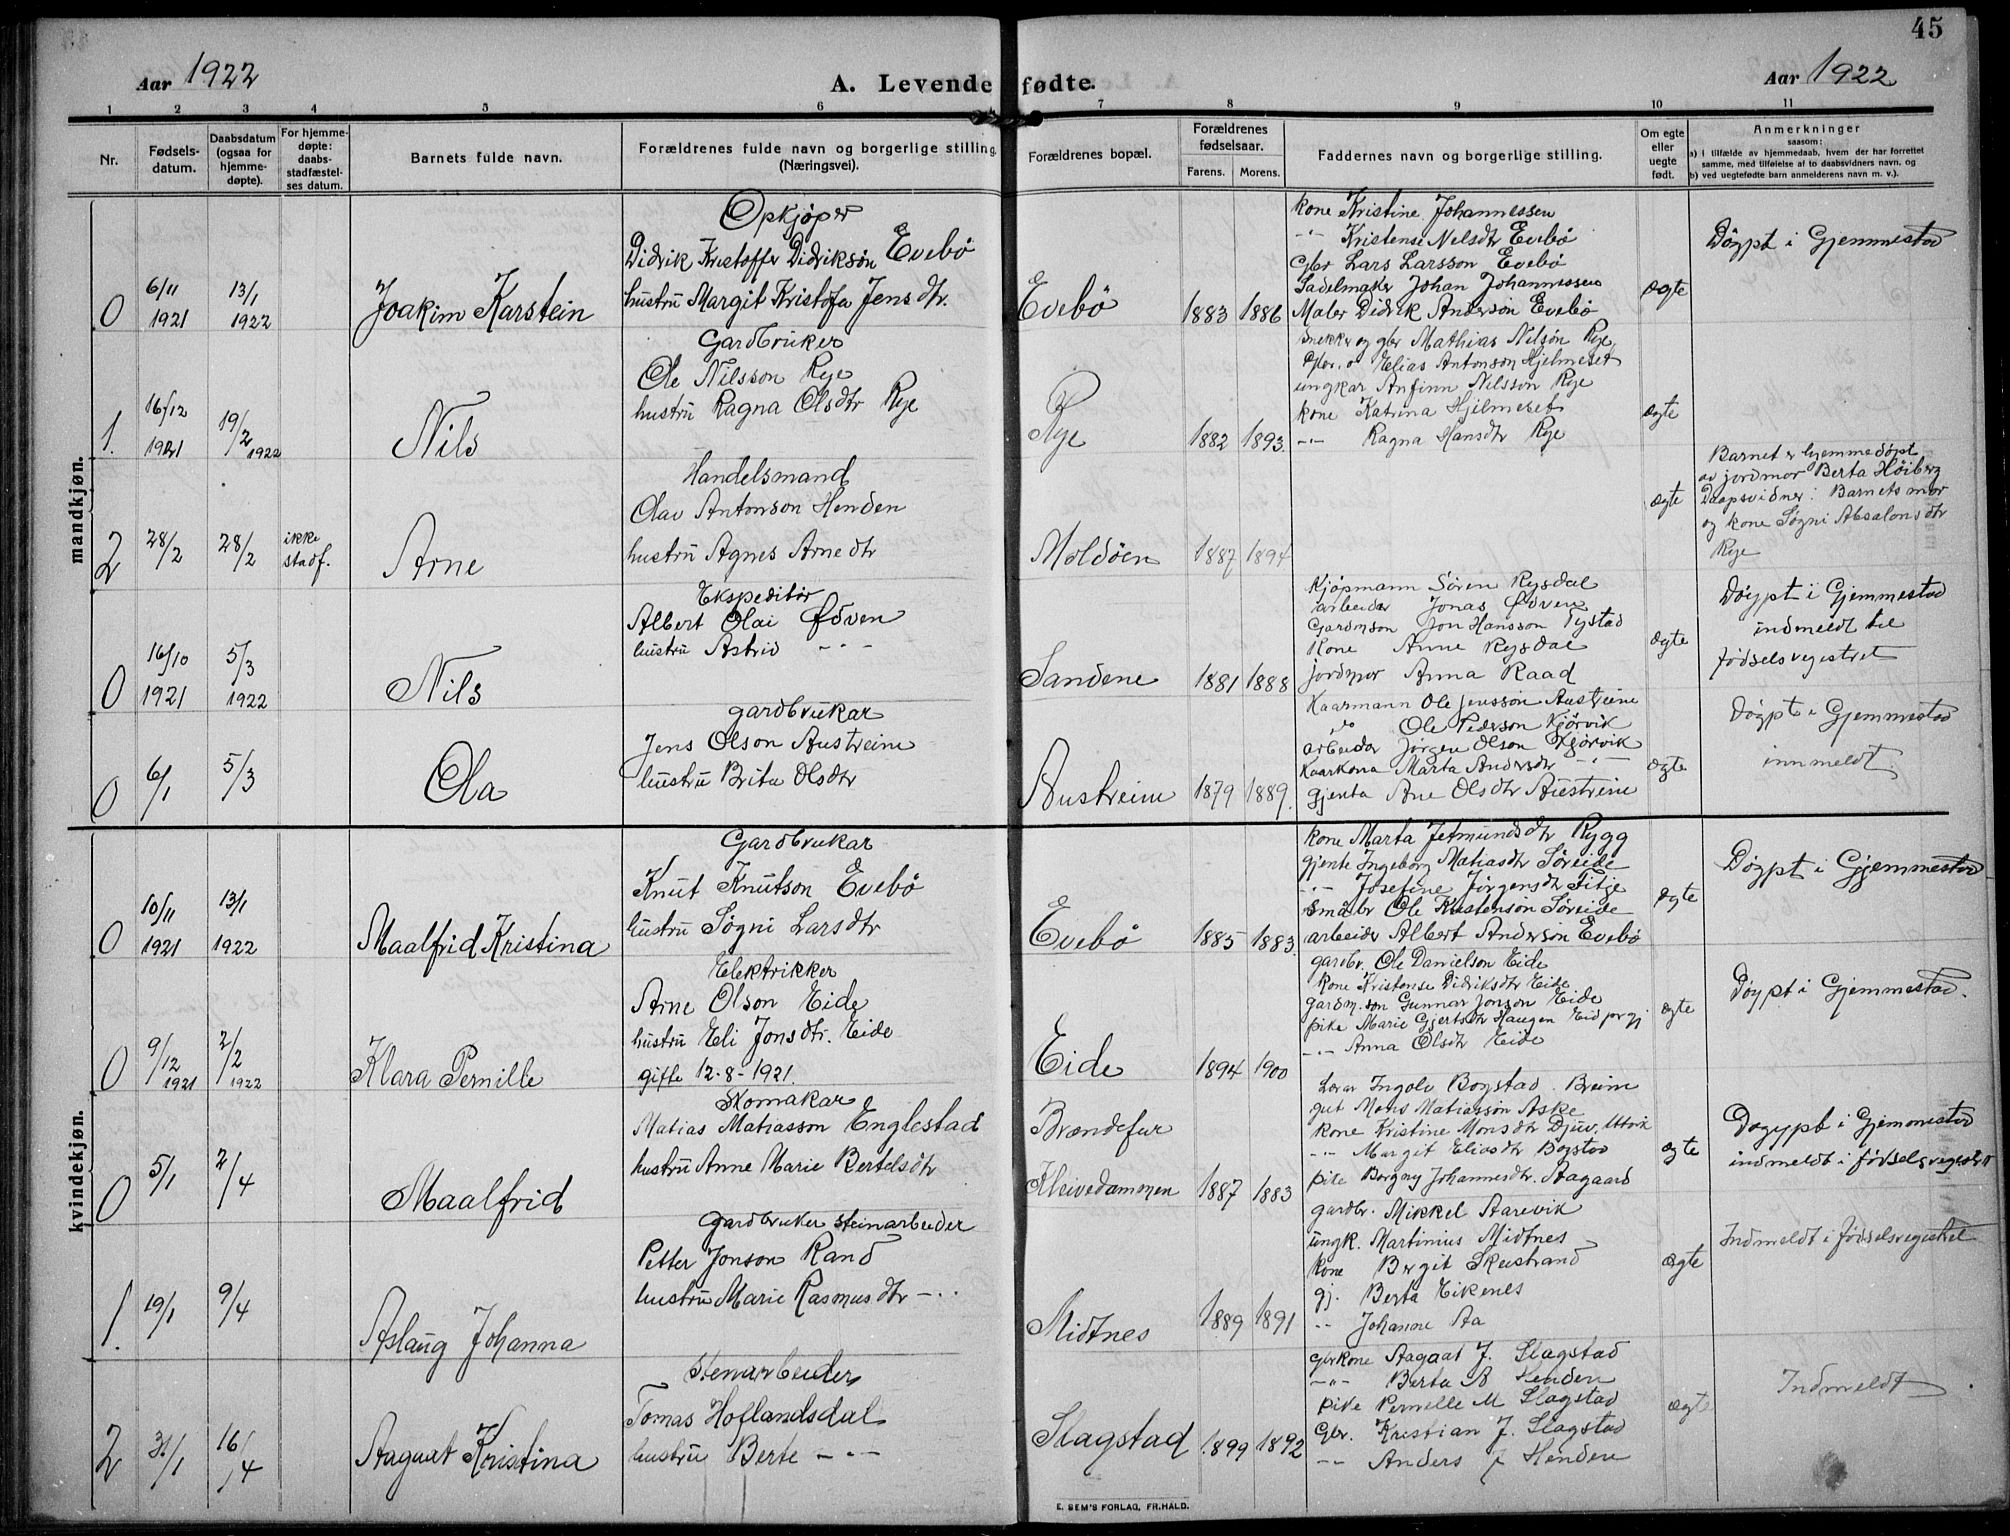 45
Aar 1922
A. Levendefødte.
Aar 1922
1 2 3 4 5 6 7 8 9 10 11
Nr.
Fødselsdatum.
Daabsdatum (ogsaa for hjemmedøpte).
For hjemmedøpte: daabsstadfæstelses datum.
Barnets fulde navn.
Forældrenes fulde navn og borgerlige stilling (Næringsvei).
Forældrenes bopæl.
Forældrenes fødselsaar.
Farens. Morens.
Faddernes navn og borgerlige stilling.
Om egte eller uegte født.
Anmerkninger
saasom:
a) i tilfælde av hjemmedaab, hvem der har forrettet
samme, med tilføielse af to daabsvidners navn, og
b) ved uegtefødte barn anmelderens navn m. v.).
mandkjøn.
0
6/11
1921
13/1
1922
Joakim Karstein
Opkjøper
Didrik Kristoffer Didriksøn Evebø
hustru Margit Kristofa Jensdtr.
Evebø
1883 1886
kone Kristine Johannessen
-"- Kristense Nelsdtr Evebø
Gbr Lars Larsson Evebø
Sadelmaker Johan Johannessen
Maler Didrik Anderson Evebø
ægte
Døypt i Gjemmestad
1.
16/12
1921
19/2 1922
Nils
Gardbruker
Ole Nilsson Rye
hustru Ragna Olsdtr Rye
Rye
1882 1893.
snekker og gbr Mathias Nilsøn Rye
Gbr. o Elias Antonson Hjelmeset
ungkar Anfinn Nilsson Rye
kone Katrina Hjelmeset
-"- Ragna Hansdtr Rye
ægte
2
28/2
28/2
ikke
stadf.
Arne
Handelsmand
Olav Antonson Henden
hustru Agnes Arnedtr
Moldøen
1887 1894
ægte
Barnet er hjemmedøpt
av jordmor Berta Høiberg
Daapsvidner: Barnets mor
og kone Søgni Absalonsdtr
Rye
0
16/10
1921
5/3
1922
Nils
Ekspeditør
Albert Olai Ødven
hustru Astrid - " -
Sandene
1881 1888
Kjøpmann Søren Rysdal
arbeider Jonas Ødven
Gardmson Jon Hansson Tystad
Kone Anne Rysdal
jordmor Anna Raad
ægte
Døypt i Gjemmestad
indmeldt til
fødselsregistret
0
6/1
5/3
Ola
gardbrukar
Jens Olson Austreim
hustru Brita Olsdtr
Austreim
1879 1889.
Kaarmann Ole Jensson Austreim
do Ole Pederson Kjørvik
arbeidar Jørgen Olson Kjørvik
Kaarkona Marta Andersdtr -"-
gjenta Ane Olsdtr Austreim
ægte
Døypt i Gjemmestad
innmeldt
kvindekjøn.
0
10/11
1921
13/1
1922
Maalfrid Kristina
Gardbrukar
Knut Knutson Evebø
hustru Søgni Larsdtr
Evebø
1885 1883.
kone Marta Jetmundsdtr Rygg
gjente Ingeborg Matiasdtr Søreide
-"- Josefine Jørgensdtr Fitje
Småbr Ole Kristensøn Søreide
arbeider Albert Anderson Evebø
ægte
Døypt i Gjemmestad
0
9/12
1921
2/2
1922
Klara Pernille
Elektrikker
Arne Olson Eide
hustru Eli Jonsdtr. Eide
gifte 12-8-1921.
Eide
1894 1900
gardbr. Ole Danielson Eide
Kone Kristense Didriksdtr Eide
gardm.son Gunnar Jonson Eide
pike Marie Gjertsdtr Haugen Eid prgj
-"- Anna Olsdtr Eide
ægte
Døypt i Gjemmestad.
0
5/1
2/4
Maalfrid
Skomakar
Matias Matiasson Englestad
hustru Anne Marie Bertelsdtr
Brændefur
Kleivedammen
1887 1883
Lærar Ingolv Bogstad Breim
gut Mons Matiassøn Aske
kone Kristine Monsdtr Djuv, Utvik
-"- Margit Eliasdtr Bogstad
pike Borgny Johannesdtr. Aagaard
ægte
Døypt i Gjemmestad
indmeldt i fødselsregistret
1.
19/1
9/4
Aslaug Johanna
Gardbruker steinarbeider
Petter Jonson Rand
hustru Marie Rasmusdtr - "
Midtnes
1889 1891
gardbr. Mikkel Aarevik
ungk. Martinius Midtnes
kone Bergit Skeistrand
gj. Berta Eikenes
-"- Johanne Aa
ægte
Indmeldt i fødselsregistret
2
31/1
16/4
Aagaat Kristina
Stenarbeider
Tomas Hoflandsdal
hustru Berte - " -
Slagstad
1899 1892
Gbrkone Aagaat J. Slagstad
-"- Berta A Henden
pike Pernelle M Slagstad
Gbr. Kristian J. Slagstad
-"- Anders J Henden
ægte
Indmeldt
E. SEM'S FORLAG, FR.HALD.